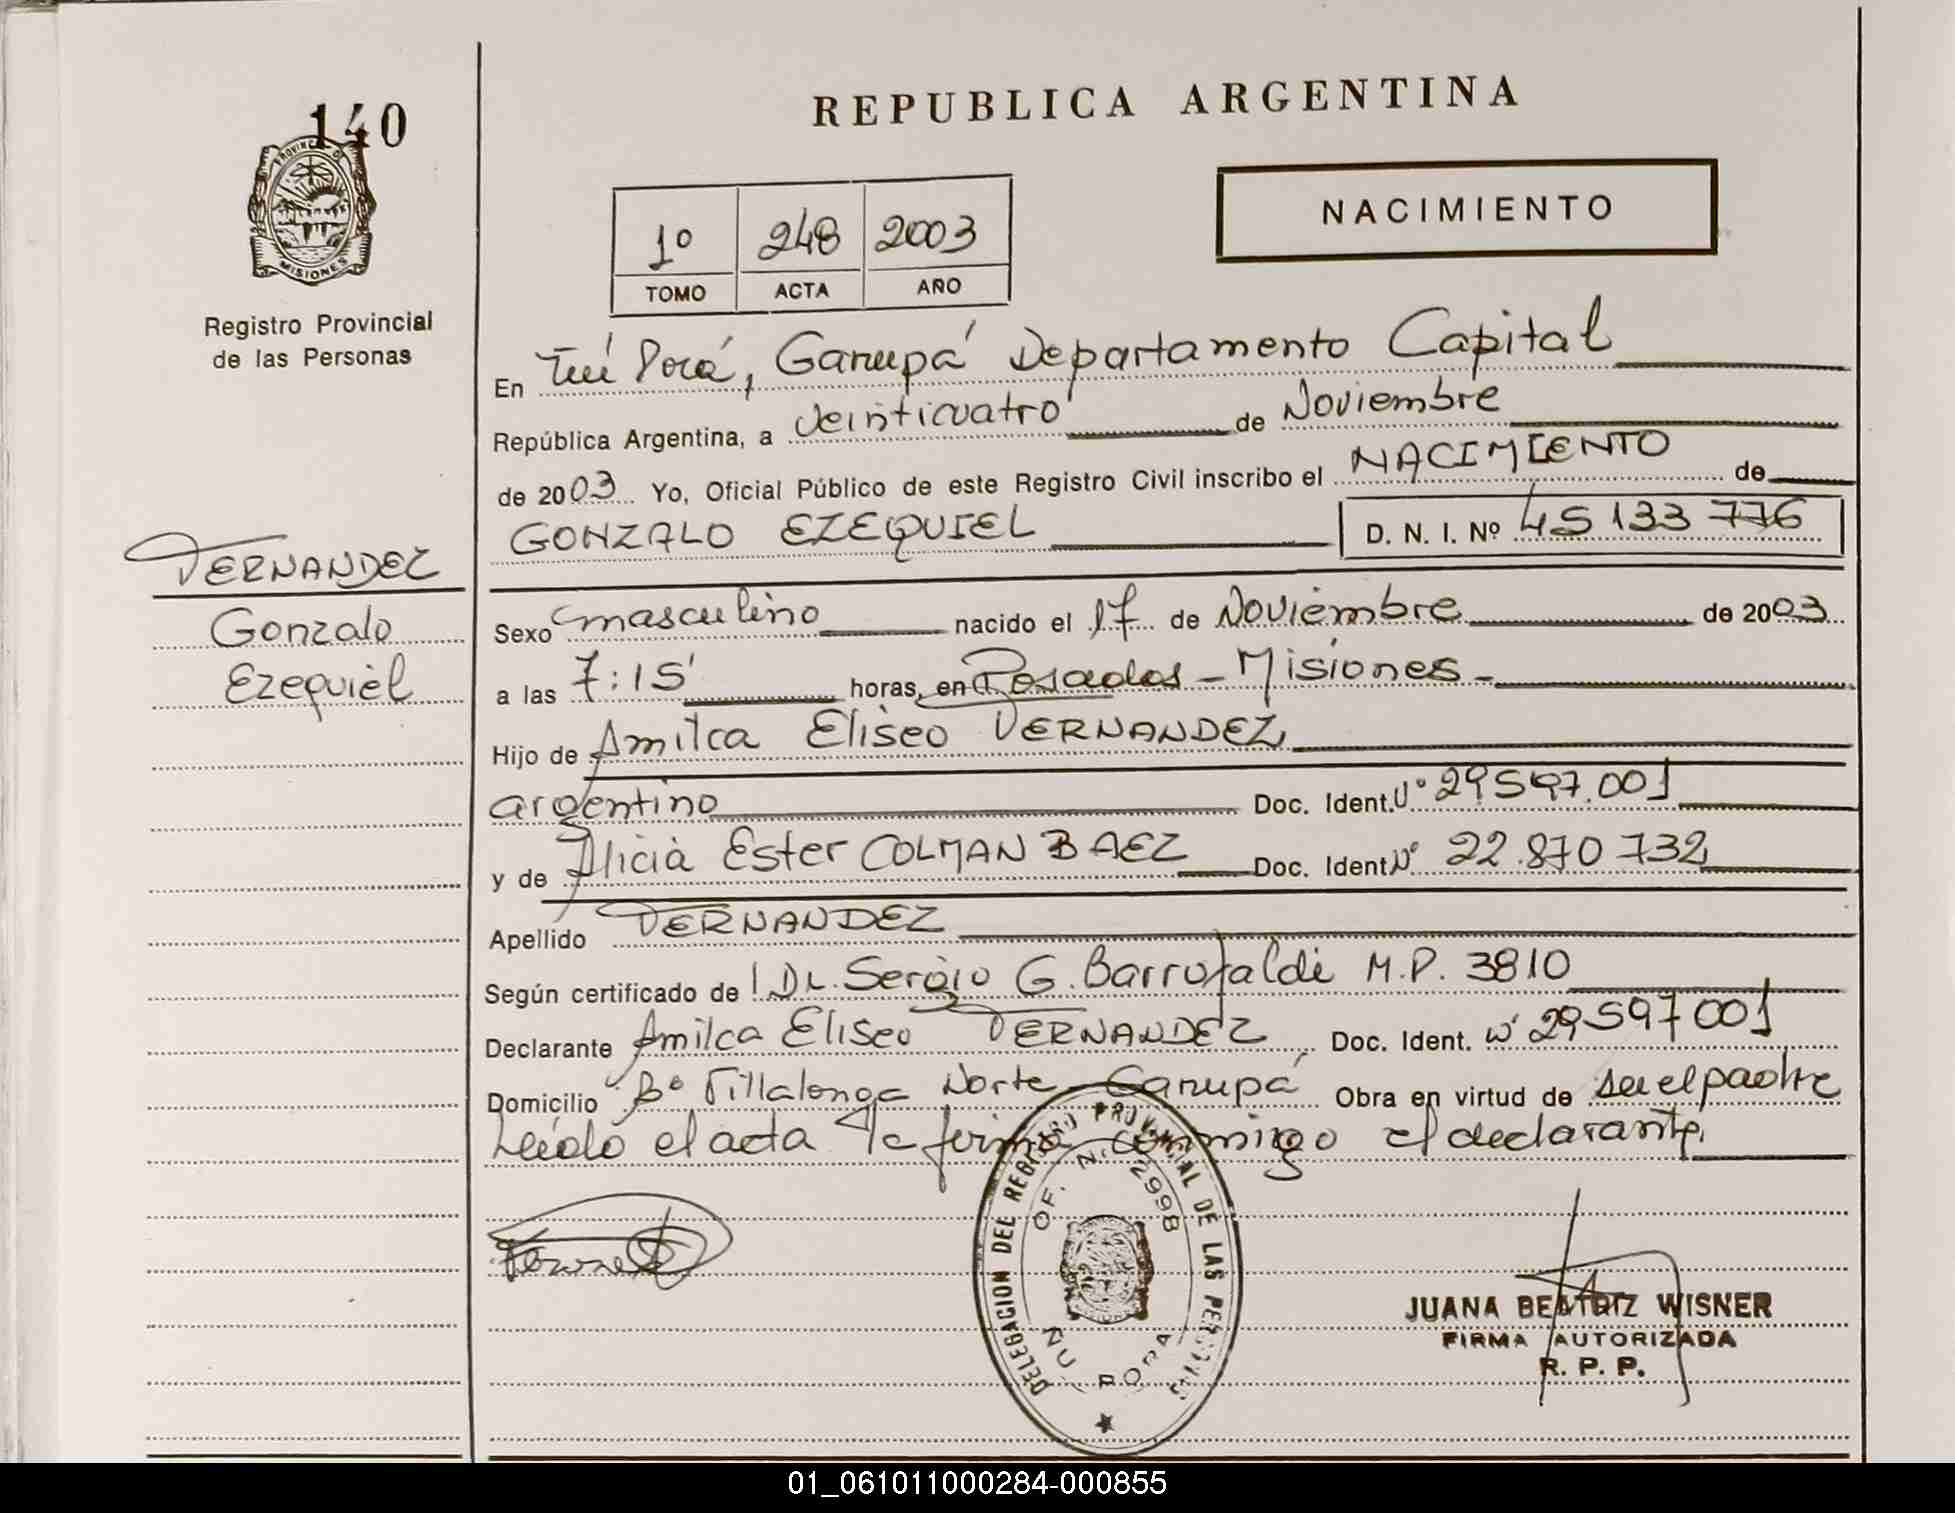 140
REPUBLICA ARGENTINA
PROVINCIA D
MISIONES
Registro Provincial
de las Personas
NACIMIENTO
1º 248 2003
TOMO ACTA AÑO
En Ñu Porá, Garupá Departamento Capital
República Argentina, a veinticuatro de Noviembre
de 2003 Yo, Oficial Público de este Registro Civil inscribo el NACIMIENTO de
GONZALO EZEQUIEL D. N. I. Nº 45 133 776
FERNANDEZ
Gonzalo
Ezequiel
Sexo masculino nacido el 17 de Noviembre de 2003
a las 7:15' horas, en Posadas - Misiones -
Hijo de Amilca Eliseo FERNANDEZ
argentino Doc. Ident. Nº 29597.001
y de Alicia Ester COLMAN BAEZ Doc. Ident Nº 22.870 732
Apellido FERNANDEZ
Según certificado de Dr. Sergio G. Barrufaldi M.P. 3810
Declarante Amilca Eliseo FERNANDEZ, Doc. Ident. Nº 29597001
Domicilio Bº Villalonga Norte - Garupá Obra en virtud de ser el padre
Leída el acta la firma conmigo el declarante.
DELEGACION DEL REGISTRO PROVINCIAL DE LAS PERSONAS
OF. N. 2998
ÑU PORA
JUANA BEATRIZ WISNER
FIRMA AUTORIZADA
R. P. P.
01_061011000284-000855